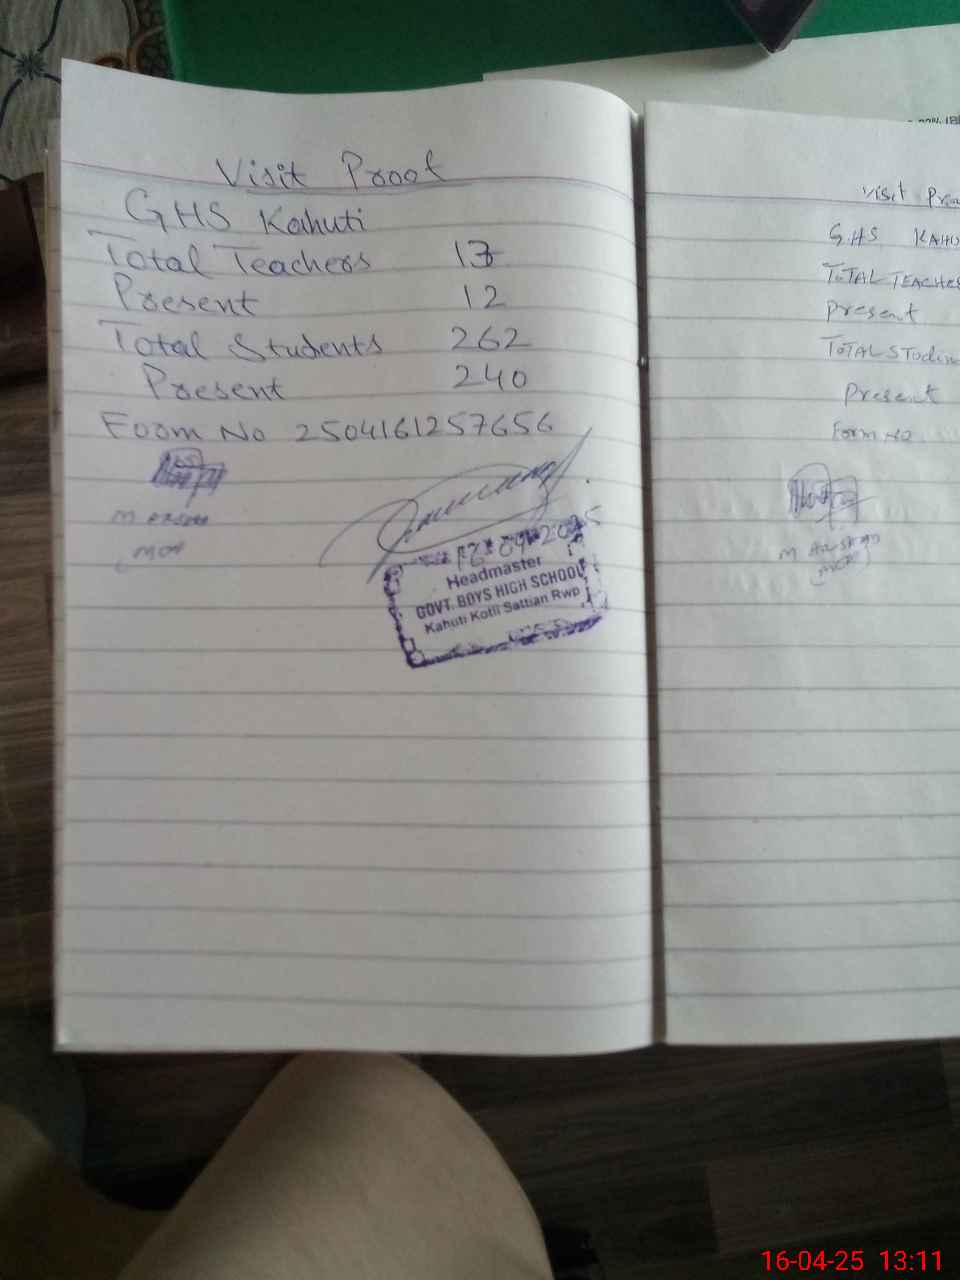 Visit Proof
GHS Kahuti
Total Teachers 13
Present 12
Total Students 262
Present 240
Form No 2504161257656
16-04-2025
Headmaster
GOVT. BOYS HIGH SCHOOL
Kahuti Kotli Sattian Rwp
Visit Proo
G.HS KAHU
TOTAL TEACHE
Present
TOTAL STuden
Present
Form No
M
16-04-25 13:11